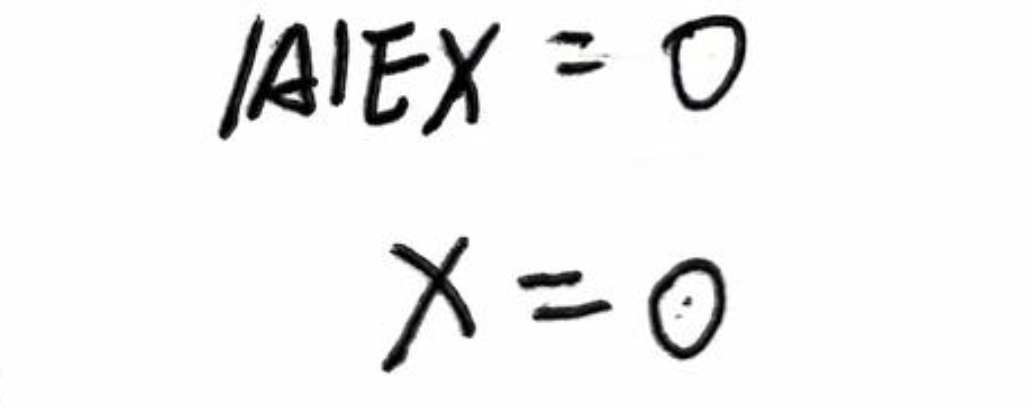 |A|EX = 0
X = 0